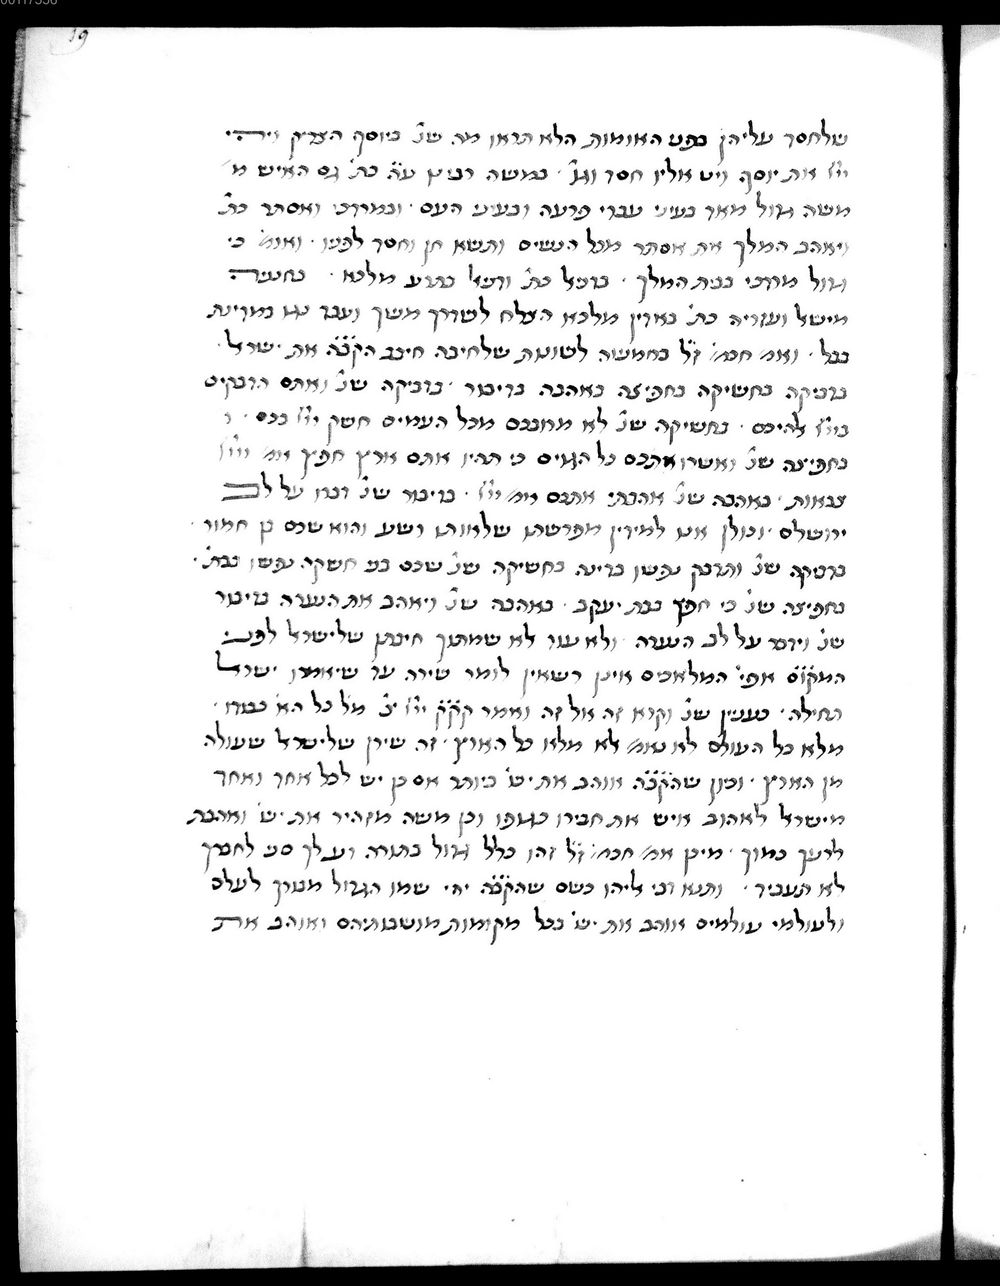 19
שלחסד עליהן בפני האומות הלא תראו מה שנ' ביוסף הצדיק ויהי
ייי את יוסף ויט אליו חסד וגו' · במשה רבינו ע"ה כת' גם האיש מ'
משה גדול מאד בעיני עבדי פרעה ובעיני העם · ובמרדכי ואסתר כת'
ויאהב המלך את אסתר מכל הנשים ותשא חן וחסד לפניו · ואומ' כי
גדול מרדכי בבית המלך · בדניאל כת' ודניאל בתרע מלכא · בחנניה
מישאל ועזריה כת' באדין מלכא הצלח לשדרך מישך ועבד נגו במדינת
בבל · ואמ' חכמ' ז"ל בחמשה לשונות שלחיבה חיבב הקב"ה את ישראל ·
בדביקה בחשיקה בחפיצה באהבה בדיבור · בדביקה שנ' ואתם הדבקים
בייי אלהיכם · בחשיקה שנ' לא מרובכם מכל העמים חשק ייי בכם ·
בחפיצה שנ' ואשרו אתכם כל הגוים כי תהיו אתם ארץ חפץ אמ' ייי
צבאות · באהבה שנ' אהבתי אתכם אמ' ייי · בדיבור שנ' דברו על לב
ירושלם · וכולן אנו למידין מפרשתו שלאותו רשע והוא שכם בן חמור ·
בדביקה שנ' ותדבק נפשו בדינה בחשיקה שנ' שכם בני חשקה נפשו בבת' ·
בחפיצה שנ' כי חפץ בבת יעקב · באהבה שנ' ויאהב את הנערה בדיבור
שנ' וידבר על לב הנערה · ולא עוד לא שמתוך חיבתן שלישראל לפני
המקום אפי' המלאכים אינן רשאין לומר שירה עד שיאמרו ישראל
תחילה · כענין שנ' וקרא זה אל זה ואמר קק"ק ייי צ' מל' כל הא' כבודו ·
מלא כל העולם לא נאמ' לא מלא כל הארץ · זה שירן שלישראל שעולה
מן הארץ · וכיון שהקב"ה אוהב את יש' ביותר אם כן יש לכל אחד ואחד
מישראל לאהוב איש את חבירו כגופו וכן משה מזהיר את יש' ואהבת
לרעך כמוך · מיכן אמ' חכמ' ז"ל זהו כלל גדול בתורה דעלך סני לחברך
לא תעביד · ותנא רבי אליהו כשם שהקב"ה יהי שמו הגדול מבורך לעלם
ולעולמי עולמים אוהב את יש' בכל מקומות מושבותיהם ואוהב את